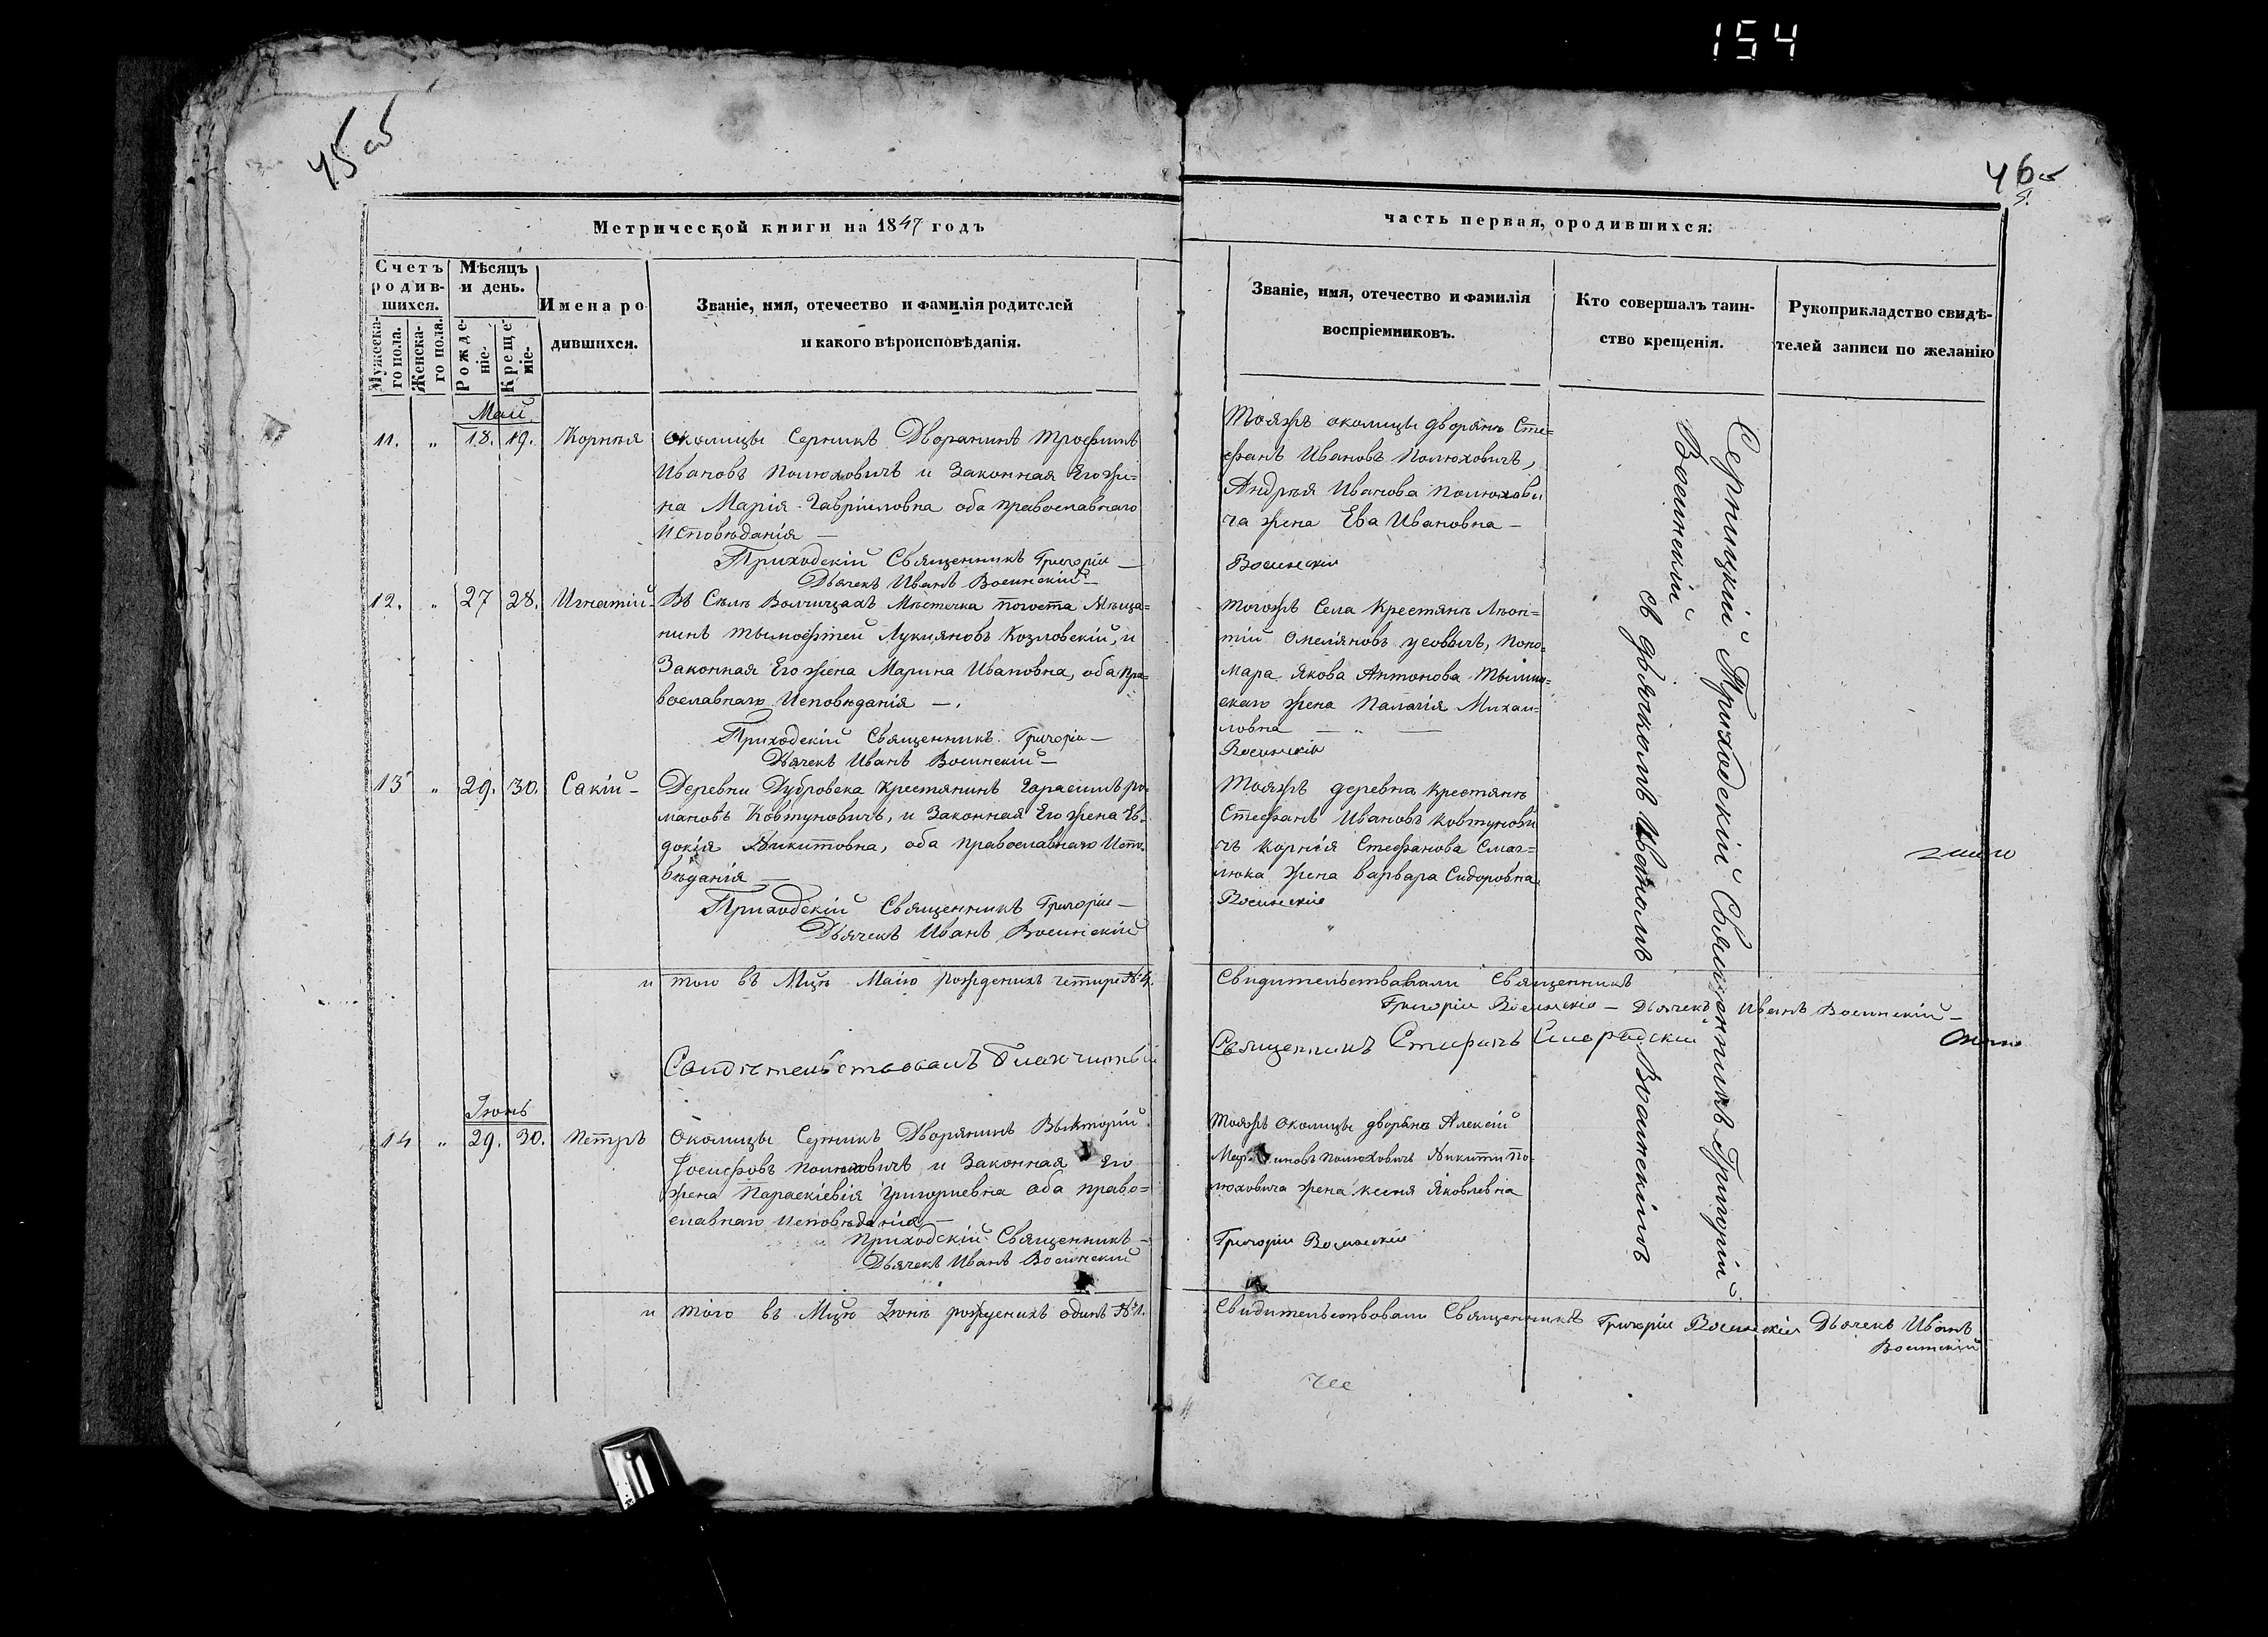 154
45 об
46
Метрической книги на 1847 годъ
часть первая, ородившихся:
Счетъ родив-шихся.
Мужеска-го пола.
Женска-го пола.
Мѣсяцъ и день.
Рожде-ніе.
Креще-ніе.
Имена ро-
дившихся.
Званіе, имя, отечество и фамилія родителей
и какого вѣроисповѣданія.
Званіе, имя, отечество и фамилія
воспріемниковъ.
Кто совершалъ таин-
ство крещенія.
Рукоприкладство свидѣ-
телей записи по желанію
Май
11. " 18. 19. Корнѣя
околицы Серникъ Дворанинъ Трофимъ
Ивановъ Полюховичъ и Законная Его же=
на Марія Гавріиловна оба православнаго
Исповѣданія —
Приходскій Священникъ Григоріи —
Дьячекъ Иванъ Восинскій —
Тояжъ околицы дворянъ Сте=
фанъ Ивановъ Полюховичъ,
Андрѣя Иванова Полюхови
ча жена Ева Ивановна —
Восинскіи
12. " 27 28. Игнатій
Въ Сѣлѣ Волчицахъ Мѣстечка погоста Мѣща=
нинъ Тымофтей Лукияновъ Козловскій, и
Законная Его жена Марина Ивановна, оба пра=
вославнаго Исповѣданія —.
Приходскій Священникъ Григоріи —
Дьячекъ Иванъ Восинскій —
Тогожъ Села Крестянъ Лѣон=
тій Омеляновъ Усовичъ, поно=
мара Якова Антонова
скаго жена Палагія Михаи=
ловна — " —
Восинскіи
13 " 29. 30. Сакій —
Деревни Дубровска Крестянинъ Гарасимъ ро=
мановъ Ковтуновичъ, и Законная Его жена Ев=
докія Никитовна, оба православнаго Испо=
вѣданія —
Приходскій Священникъ Григоріи —
Дьячекъ Иванъ Восинскій
Тояжъ деревна крестянъ
Стефанъ Ивановъ Ковтунови
чъ Корнѣя Стефанова Смог=
люка жена Варвара Сидоровна.
Восинскіи
и того въ Мцѣ Маію рожденихъ четире №4.
Свидительствавали Священникъ
Григоріи Восинскіи — Дьячекъ Иванъ Восинскій —
Свидѣтельствовалъ Благочинный
Священникъ Стефанъ
Іюнь
14 " 29. 30. Петръ
Околицы Серникъ Дворянинъ Выкторій
Іосифовъ Полюховичъ и Законная Его
жена Параскіевія Григориевна оба право=
славнаго исповѣданія —
Приходскій Священникъ —
Дьячекъ Иванъ Восинскій
Тояжъ околицы дворянъ Алексій
Полюховичъ Никити По=
люховича жена Ксеня Яковлевна
Григоріи Восинскіи
и того въ Мцѣ Іюнѣ рожденихъ одинъ №1.
Свидительствовали Священникъ Григоріи Восинскіи Дьячекъ Иванъ
Восинскій
Серницкій Приходскій Священникъ Григорій
Восинскій съ дьячкомъ Иваномъ Восинскимъ